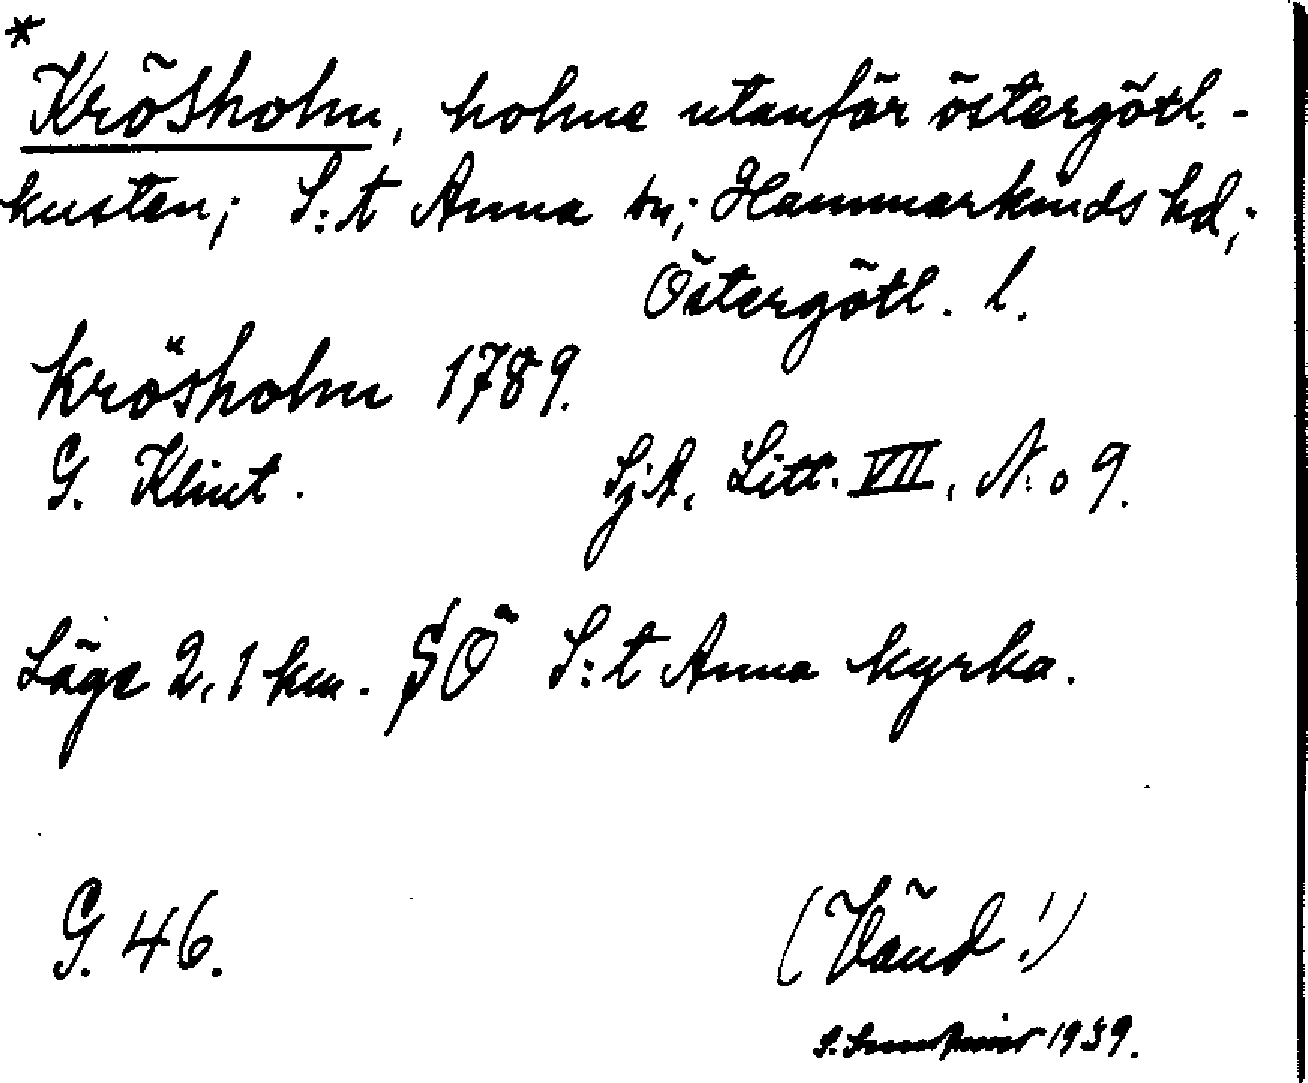 *
Krösholm, holme utanför östergötl.-
kusten; S:t Anna sn; Hammarkinds hd;
Östergötl. l.
Krösholm 1789.
G. Klint. SjA, Litt. VII, N:o 9.
Läge 2,1 km. SÖ S:t Anna kyrka.
G. 46. (Vänd!)
S. 1939.